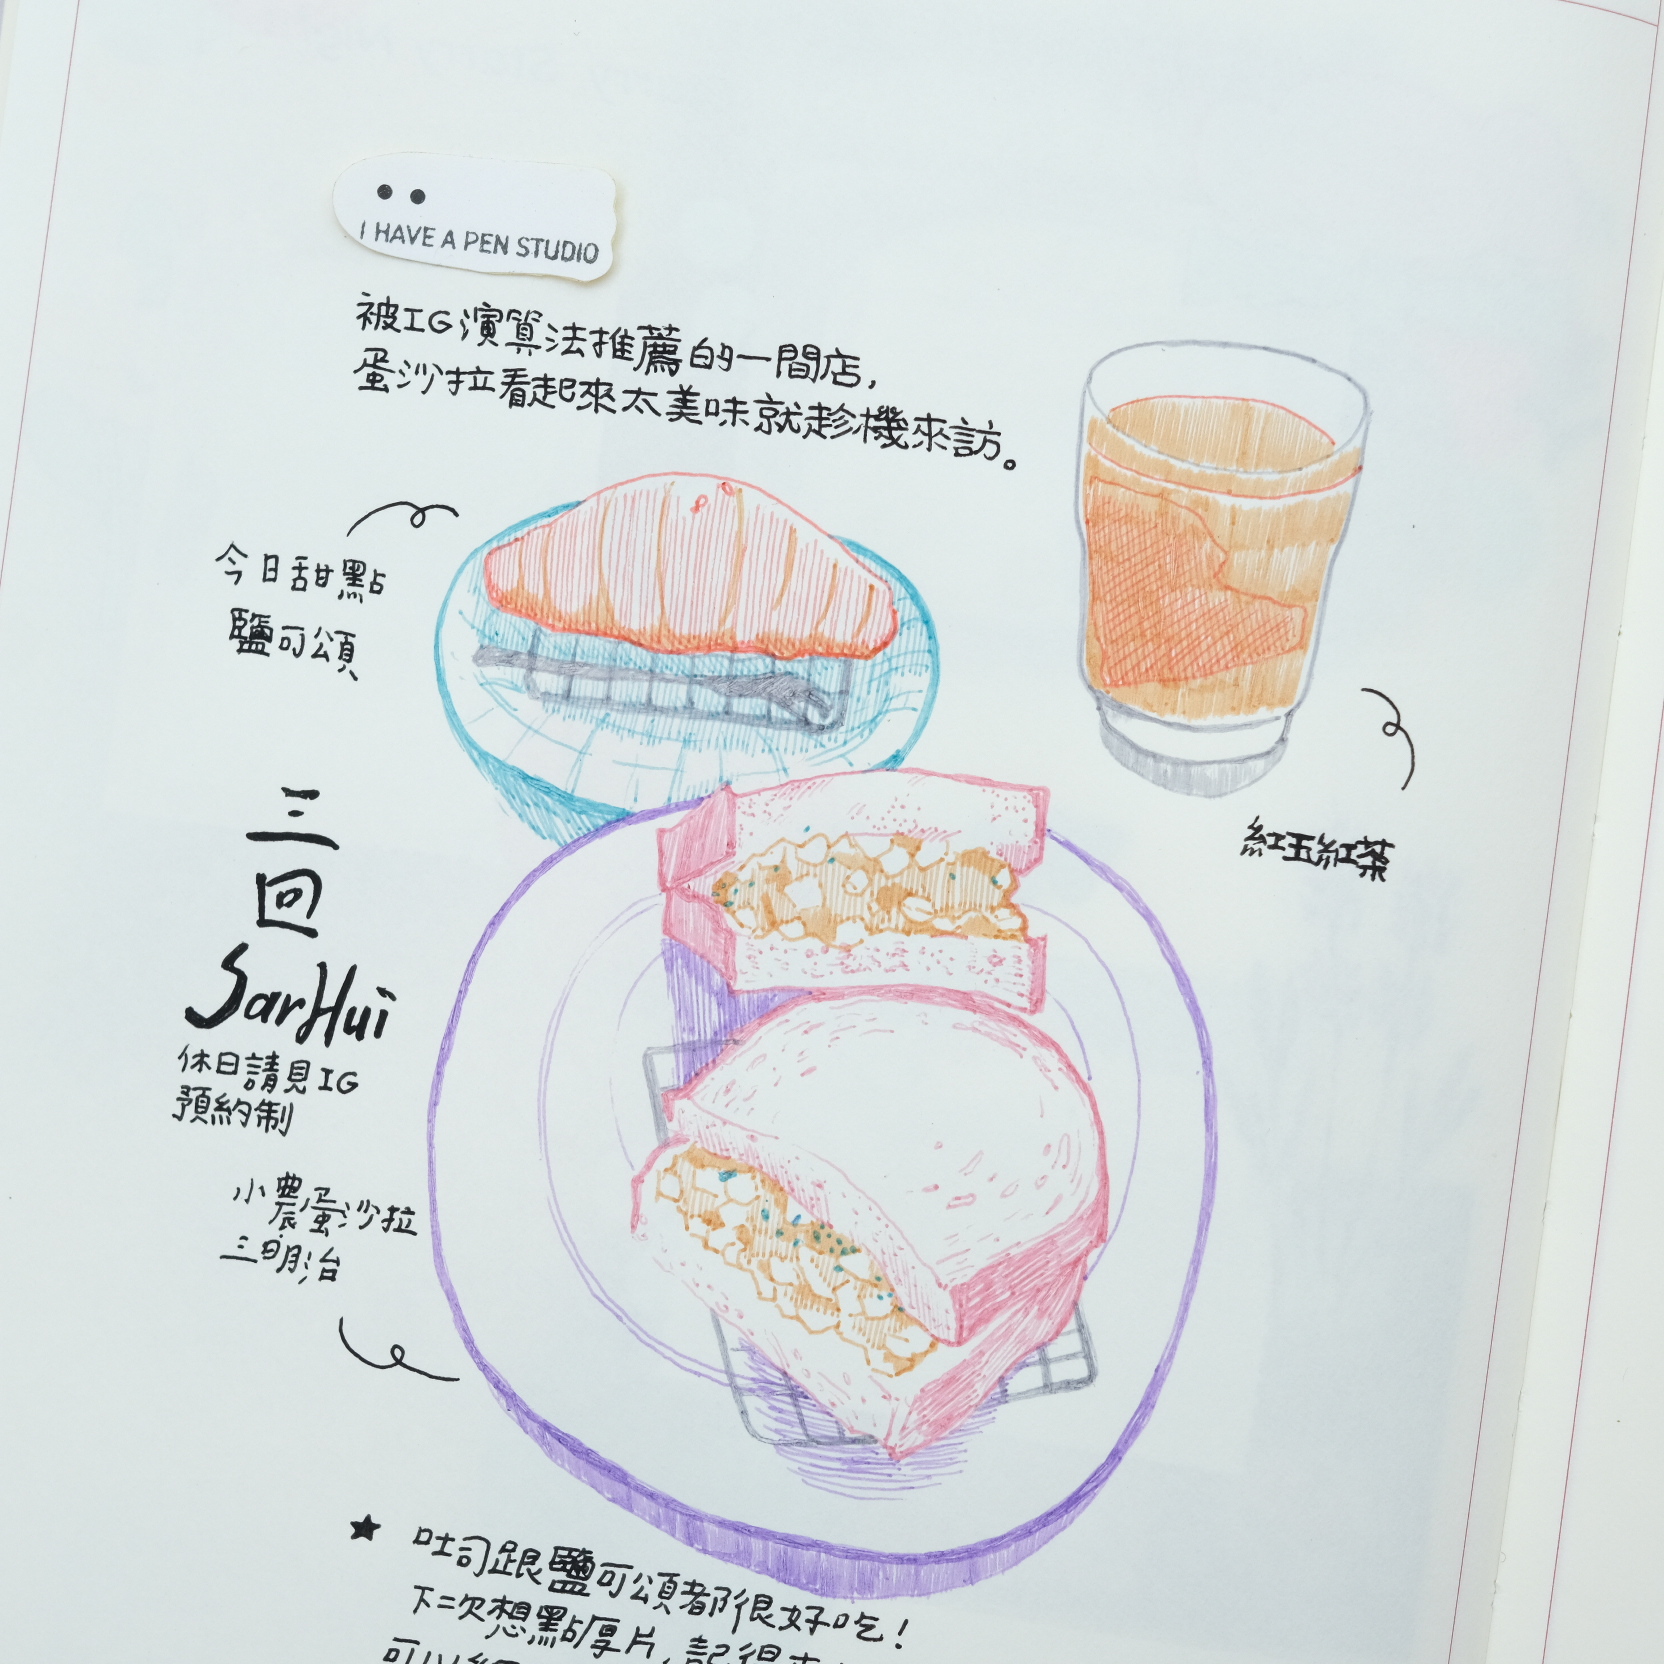 I HAVE A PEN STUDIO
被IG演算法推薦的一間店，
蛋沙拉看起來太美味就趁機來訪。
今日甜點
鹽可頌
紅玉紅茶
三回
SarHui
休日請見IG
預約制
小農蛋沙拉
三明治
★ 吐司跟鹽可頌都很好吃！
下二次想點厚片，記得
可以